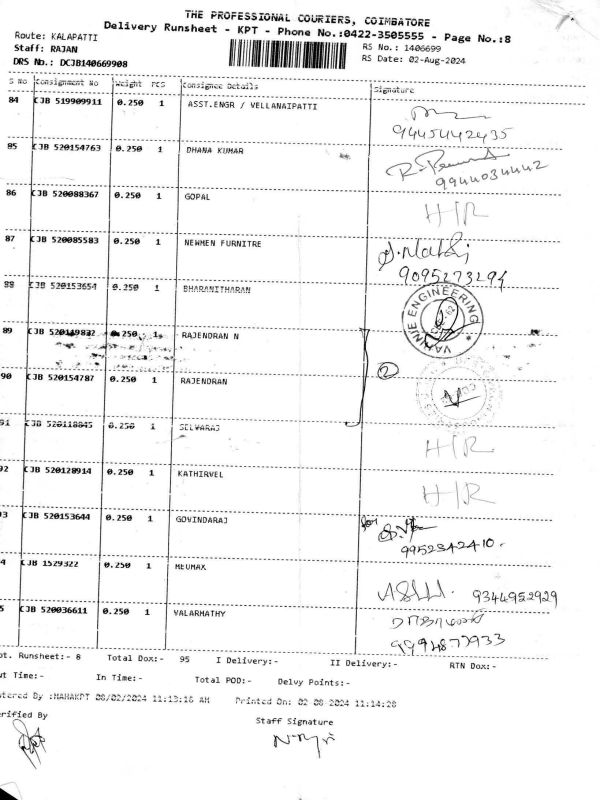 THE PROFESSIONAL COURIERS, COIMBATORE
Delivery Runsheet - KPT - Phone No.:0422-3505555 - Page No.:8
Route: KALAPATTI
RS No.: 1406699
Staff: RAJAN
RS Date: 02-Aug-2024
DRS No.: DCJB140669908
S No Consignment No Weight PCS Consignee Details Signature
84 CJB 519909911 0.250 1 ASST.ENGR / VELLANAIPATTI
9445442435
85 CJB 520154763 0.250 1 DHANA KUMAR
9944034442
86 CJB 520088367 0.250 1 GOPAL H/R
87 CJB 520085583 0.250 1 NEWMEN FURNITRE
9095273294
88 CJB 520153654 0.250 1 BHARANITHARAN
VANNIE ENGINEERING
89 CJB 520119832 0.250 1 RAJENDRAN N
2
90 CJB 520154787 0.250 1 RAJENDRAN
91 CJB 520118845 0.250 1 SELWARAJ H/R
92 CJB 520128914 0.250 1 KATHIRVEL H/R
93 CJB 520153644 0.250 1 GOVINDARAJ for
9952342410.
4 CJB 1529322 0.250 1 MEUMAX
9344952929
5 CJB 520036611 0.250 1 VALARMATHY
9994877933
pt. Runsheet:- 8 Total Dox:- 95 I Delivery:- II Delivery:- RTN Dox:-
ut Time:- In Time:- Total POD:- Delvy Points:-
tered By :MAHAKPT 08/02/2024 11:13:16 AM Printed On: 02-08-2024 11:14:28
erified By
Staff Signature